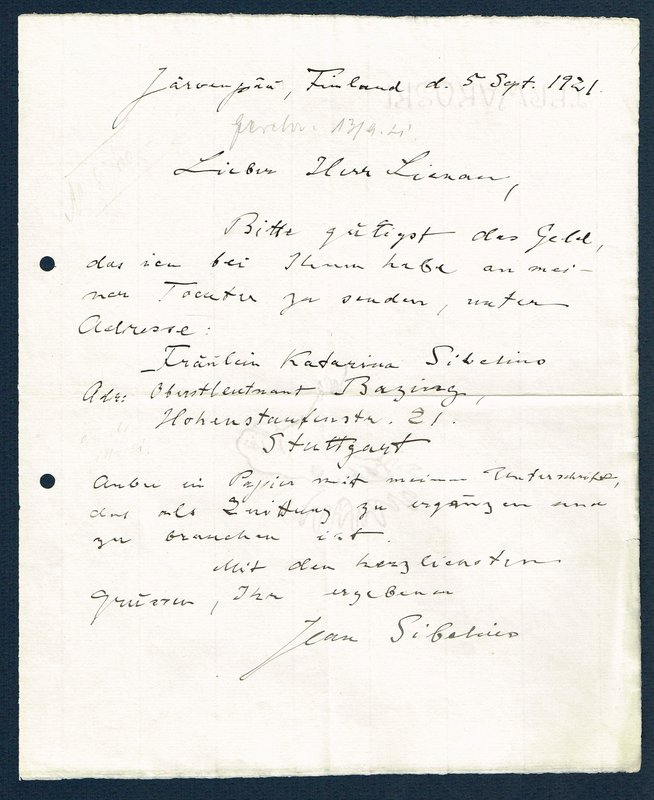 Järvenpää, Finland d. 5 Sept. 1921.
13/9.21.
Lieber Herr Lienau,
Bitte gütigst das Geld,
das ich bei Ihnen habe an mei-
ner Tochter zu senden, unter
Adresse:
Fräulein Katarina Sibelius
Adr: Oberstleutnant Bazing,
Hohenstaufenstr. 21.
Stuttgart
Anbei ein Papier mit meiner Unterschrift,
das als Quittung zu ergänzen und
zu brauchen ist.
Mit den herzlichsten
Grüssen, Ihr ergebener
Jean Sibelius